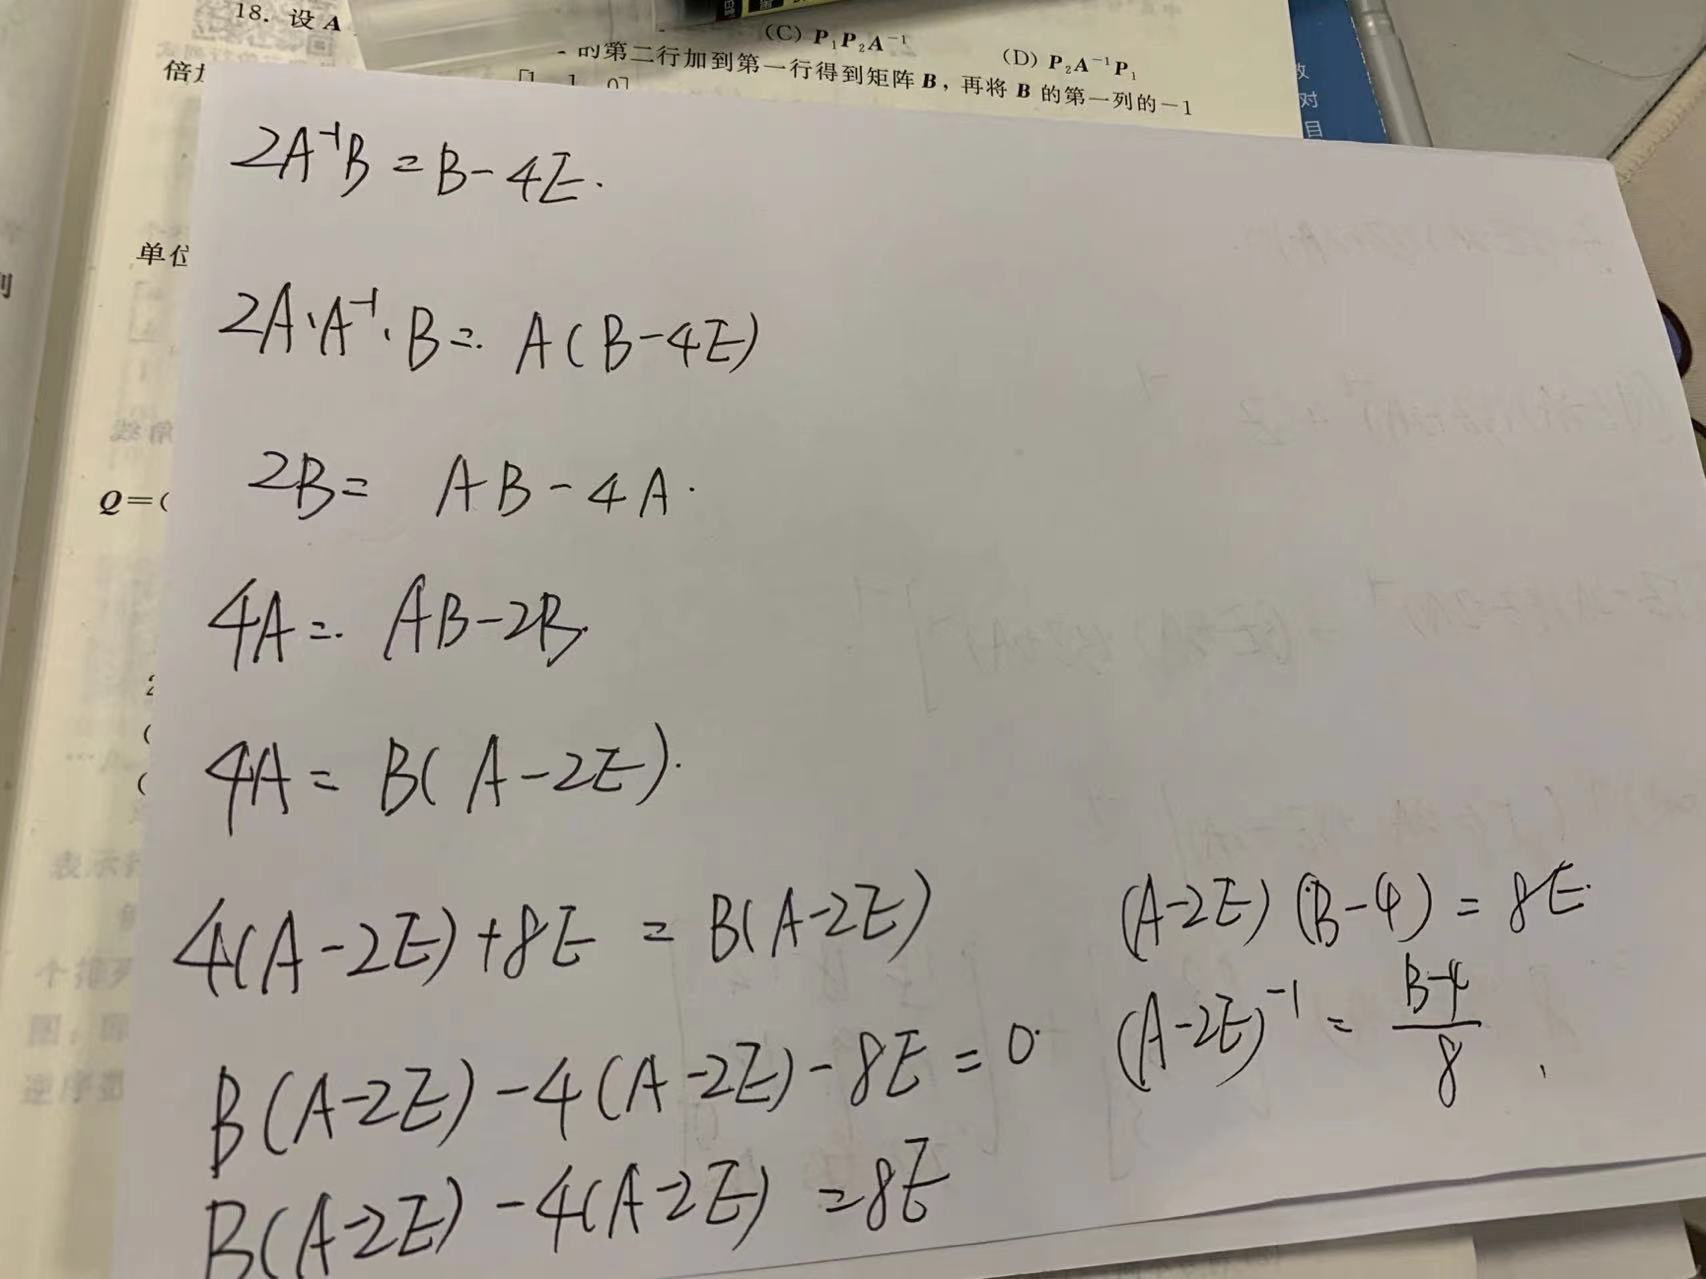 18. 设 A
(C) P₁P₂A⁻¹
(D) P₂A⁻¹P₁
的第二行加到第一行得到矩阵 B，再将 B 的第一列的－1
倍
1 1 0
2A⁻¹B = B-4E.
单位
2A·A⁻¹·B = A(B-4E)
Q=(
2B = AB-4A.
4A = AB-2B.
4A = B(A-2E).
4(A-2E)+8E = B(A-2E)
B(A-2E)-4(A-2E)-8E=0.
B(A-2E)-4(A-2E) =8E
(A-2E)(B-4) = 8E.
(A-2E)⁻¹ = B-4
8
对
目